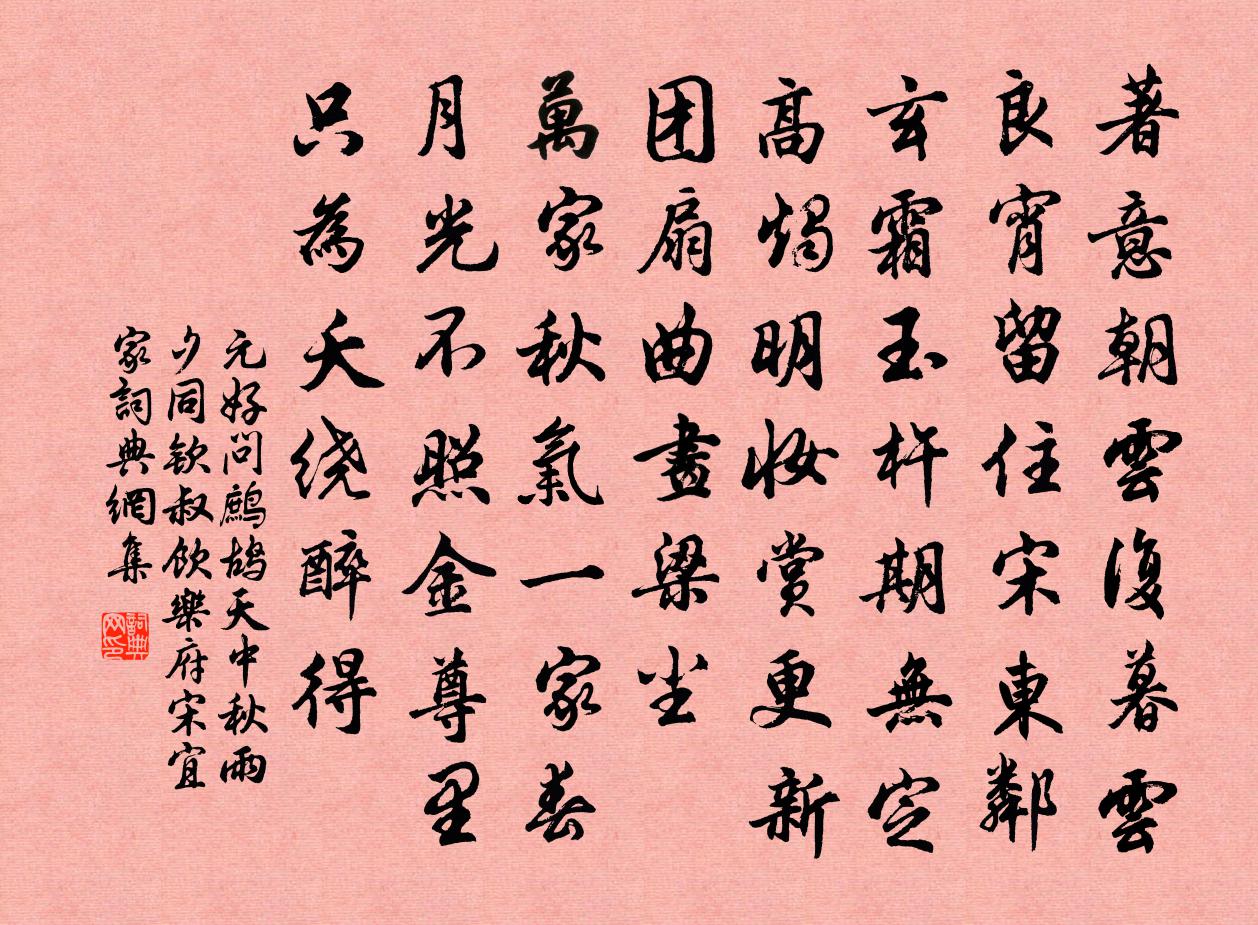 著意朝雲復暮雲
良宵留住宋東鄰
玄霜玉杵期無定
高燭明妆賞更新
团扇曲畫梁尘
萬家秋氣一家春
月光不照金尊里
只為夭绕醉得
元好问鷓鴣天中秋雨
夕同钦叔饮樂府宋宜
家詞典網集
詞典网印